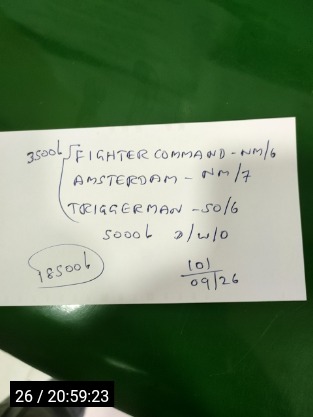 3500L FIGHTER COMMAND - NM/6
AMSTERDAM - NM/7
TRIGGERMAN - SO/6
5000L D/W/O
18500L
101
09/26
26 / 20:59:23